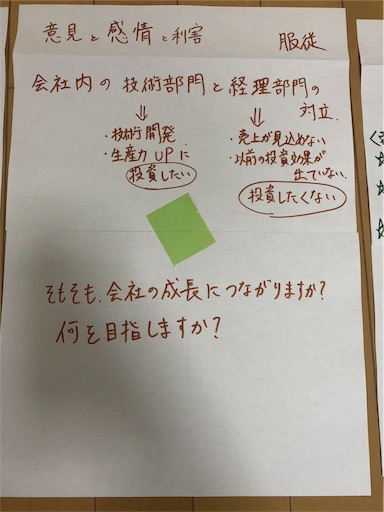 意見と感情と利害　服従
会社内の技術部門と経理部門の
対立.
⇓
・技術開発
・生産力UPに
投資したい
⇓
・売上が見込めない
・以前の投資効果が
出ていない.
投資したくない
そもそも、会社の成長につながりますか?
何を目指しますか?